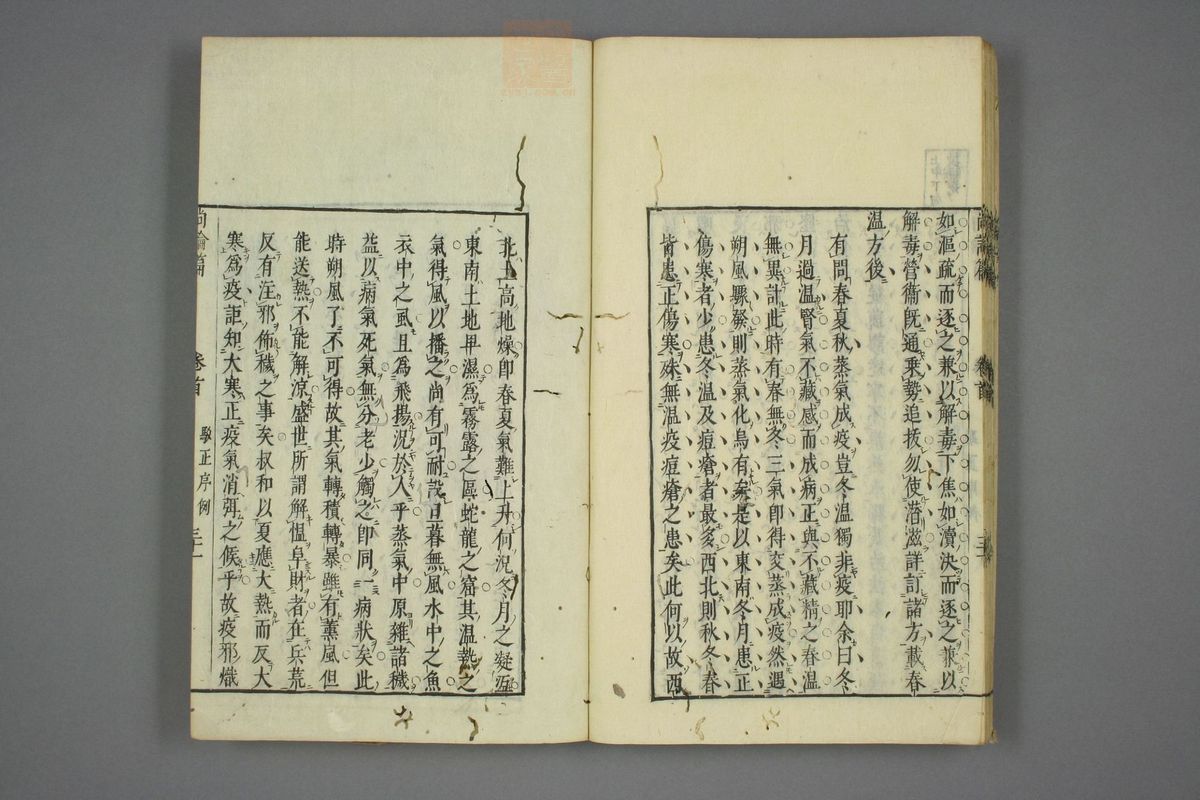 如漚疏而逐之兼以解毒下焦如瀆決而逐之兼以
解毒營衞旣通乗勢追拔勿使潛滋詳訂諸方載春
温方後
有問春夏秋蒸氣成疫豈冬温獨非疫耶余曰冬
月過温腎氣不藏感而成病正與不藏精之春温
無異計此時有春無冬三氣即得交蒸成疫然遇
朔風驟發則蒸氣化烏有矣是以東南冬月患正
傷寒者少患冬温及痘瘡者最多西北則秋冬春
皆患正傷寒殊無温疫痘瘡之患矣此何以故西
北土高地燥即春夏氣難上升何況冬月之凝沍
東南土地卑濕爲霧露之區蛇龍之窟其温熱之
氣得風以播之尚有可耐設旦暮無風水中之魚
衣中之虱且爲飛揚況於人乎蒸氣中原雜諸穢
益以病氣死氣無分老少觸之即同一病狀矣此
時朔風了不可得故其氣轉積轉暴雖有薫風但
能送熱不能解凉盛世所謂解慍阜財者在兵荒
反有注邪佈穢之事矣叔和以夏應大熱而反大
寒爲疫詎知大寒正疫氣消弭之候乎故疫邪熾
尚論篇 卷首 駁正序例 三十一